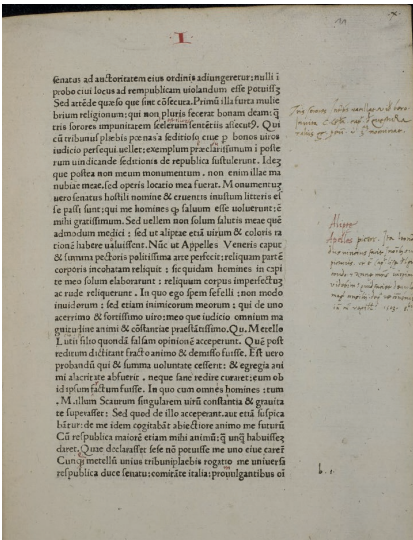 I
senatus ad auctoritatem eius ordinis adiungeretur: nulli i
probo ciui locus ad rempublicam uiolandum esse potuisset
Sed attēde quæso que sint cōsecuta. Primū illa furia mulie
brium religionum: qui non pluris fecerat bonam deam: q̄
tris sorores impunitatem scelerum sentētiis assecutꝯ. Qui
cū tribunus plæbis pœnas a seditioso ciue ꝑ bonos uiros
iudicio persequi uellet: exemplum præclarissimum ī poste
rum uindicande seditionis de republica sustulerunt. Idēq
que postea non meum monumentum. non enim illae ma
nubiae meae. sed operis locatio mea fuerat. Monumentuȝ
uero senatus hostili nomine & cruentis inustum litteris eē
se passi sunt: qui me homines ꝙ saluum esse uoluerunt: ē
mihi gratissimum. Sed uellem non solum salutis meae quē
admodum medici: sed ut aliptae etiā uirium & coloris ra
tionē habere ualuissent. Nūc ut Appelles Veneris caput
& summa pectoris politissima arte perfecit: reliquam partē
corporis incohatam reliquit: sic quidam homines in capi
te meo solum elaborarunt: reliquum corpus imperfectuȝ
ac rude reliquerunt. In quo ego spem fefelli: non modo
inuidorum: sed etiam inimicorum meorum: qui de uno
acerrimo & fortissimo uiro: meo que iudicio omnium ma
gnitudine animi & cōstantiae præstātissimo. Qu. Metello
Lutii filio quondā falsam opinionē acceperunt. Quē post
reditum dictitant fracto animo & demisso fuisse. Est uero
probandū qui & summa uoluntate cesserit: & egregia ani
mi alacritate abfuerit. neque sane redire curaret: eum ob
id ipsum fractum fuisse. In quo cum omnes homines: tum
. M. illum Scaurum singularem uirū constantia & grauita
te superasset: Sed quod de illo acceperant. aut etiā suspica
bātur: de me idem cogitabāt abiectiore animo me futurū
Cū respublica maiorē etiam mihi animū: q̄ unq̄ habuisseȝ
daret. Quae declarasset sese nō potuisse me uno ciue carere
Cunqȝ metellū unius tribuni plaebis rogatio me uniuersa
respublica duce senatu: comitāte italia: promulgantibus oī
Appelles pictor.
b. 1.